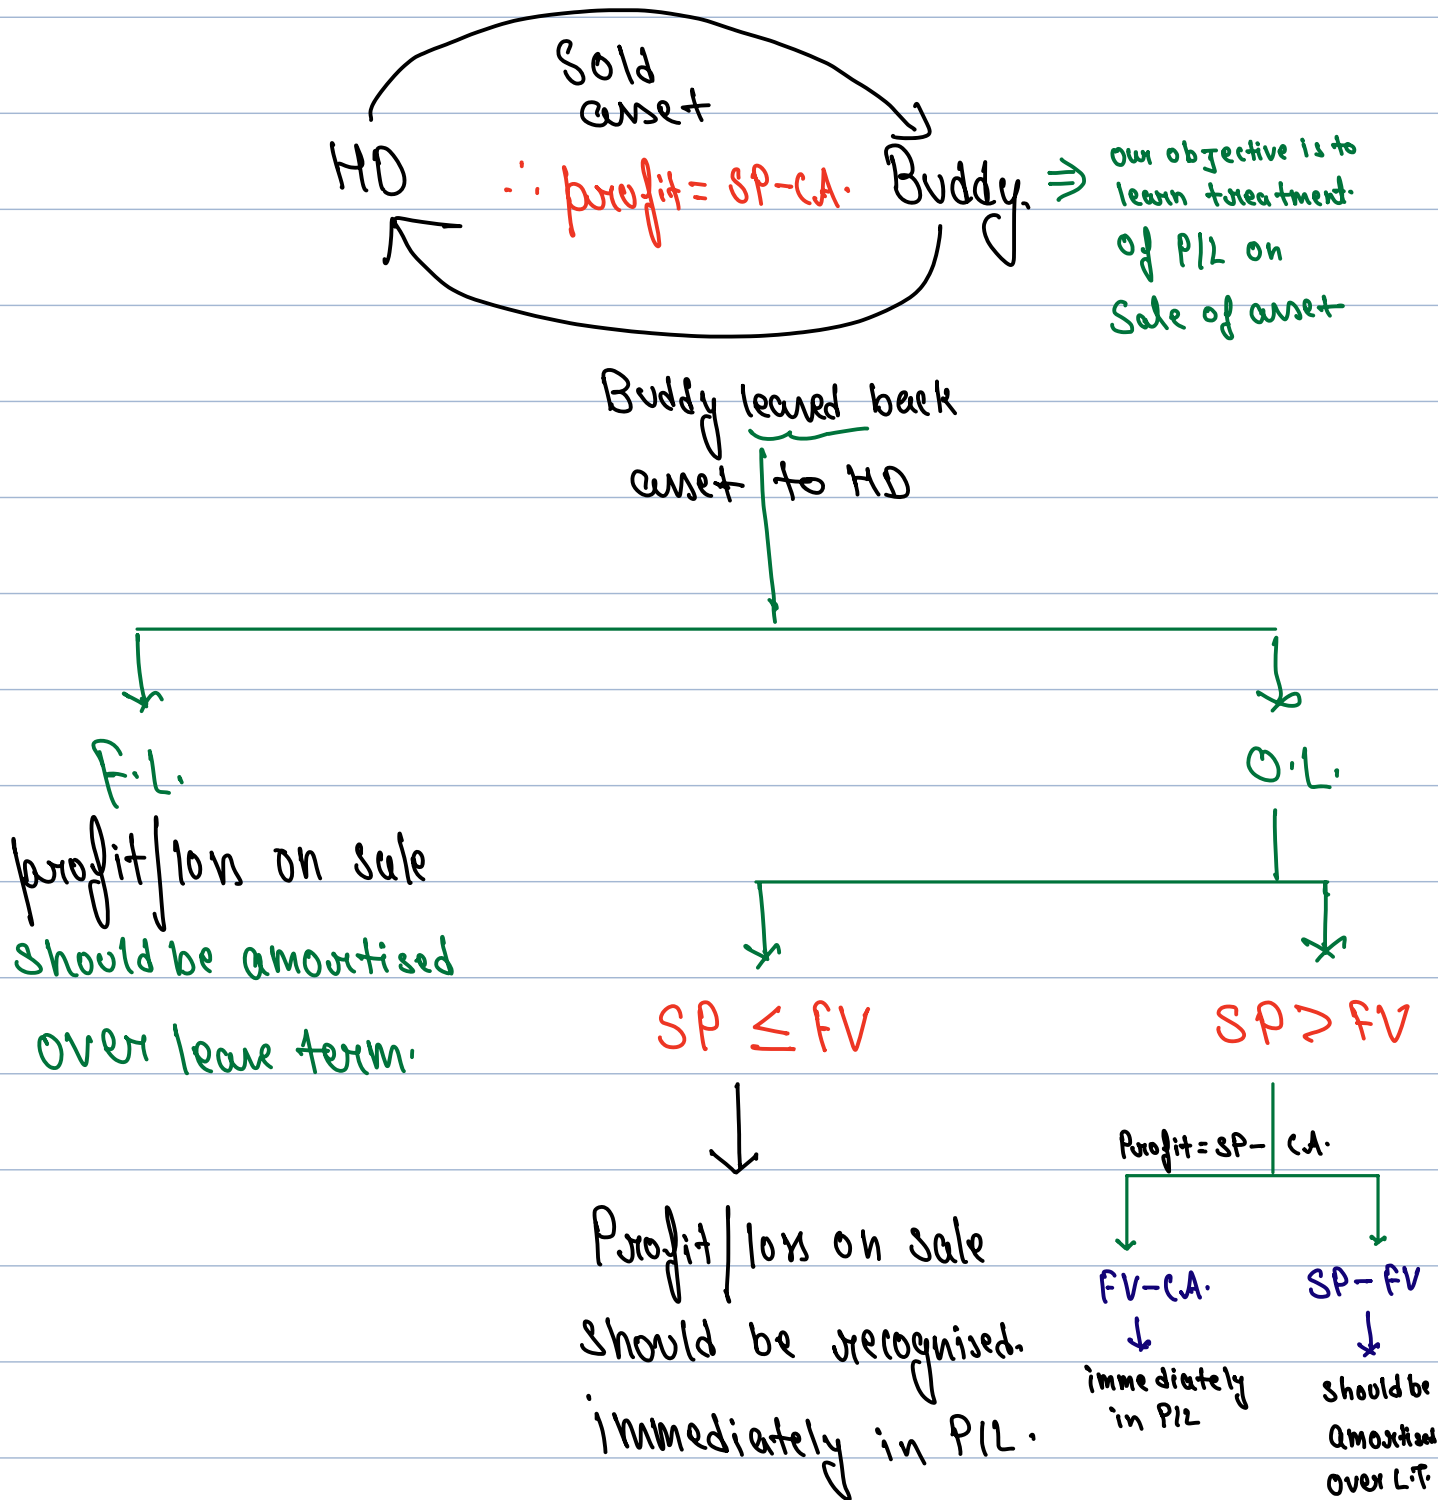 Sold
asset
HD
∴ profit = SP-CA.
Buddy.
⇒ our objective is to
learn treatment.
of P/L on
Sale of asset
Buddy leased back
asset to HD
F.L.
profit/loss on sale
should be amortised
over lease term.
O.L.
SP ≤ FV
Profit/loss on sale
should be recognised.
immediately in P/L.
SP > FV
Profit = SP - C.A.
FV-C.A.
immediately
in P/L
SP-FV
should be
amortised
over L.T.